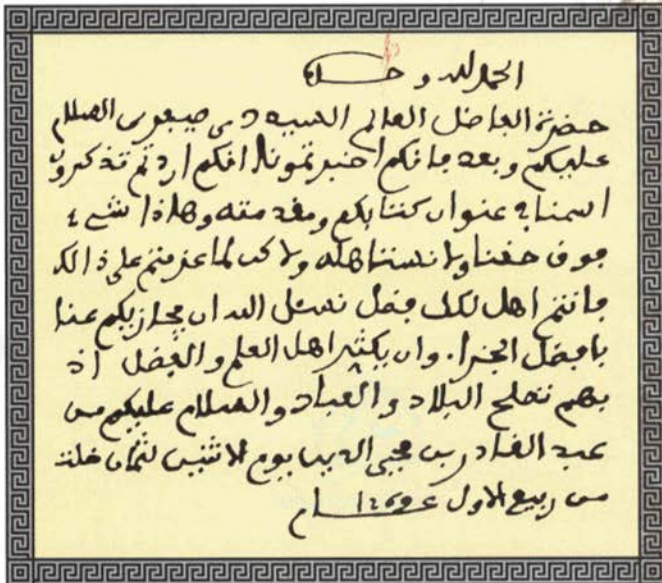 الحمد لله وحده
حضرة الفاضل العالم دى صيفرى السلام
عليكم وبعد فانكم اخبرتمونا انكم اردتم تذكرون
اسمنا في عنوان كتابكم ومقدمته وهاذا شيء
فوق حقنا ولا نستاهله ولاكن لما عزمتم على ذالك
فانتم اهل لكل فضل نسئل الله ان يجازيكم عنا
بافضل الجزا. وان يكثر اهل العلم والفضل اذ
بهم تصلح البلاد والعباد والسلام عليكم من
عبد القادر بن محيى الدين يوم الاثنين لثمان خلت
من ربيع الاول عام 1269